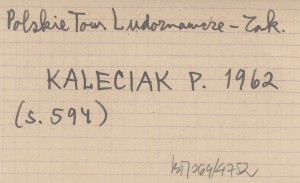 Polskie Tow. Ludoznawcze - Zak.
KALECIAK P. 1962
(s. 594)